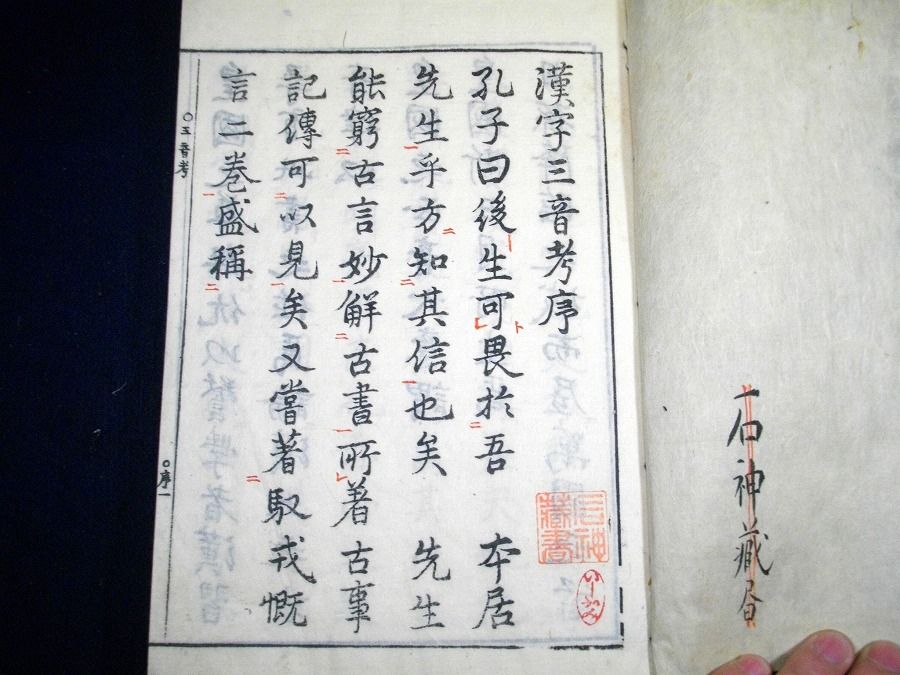 石神藏書
漢字三音考序
孔子曰後生可畏於吾 本居
先生乎方知其信也矣 先生
能窮古言妙解古書所著古事
記傳可以見矣又嘗著馭戎慨
言二卷盛稱
石神藏書
○三音考
○序一